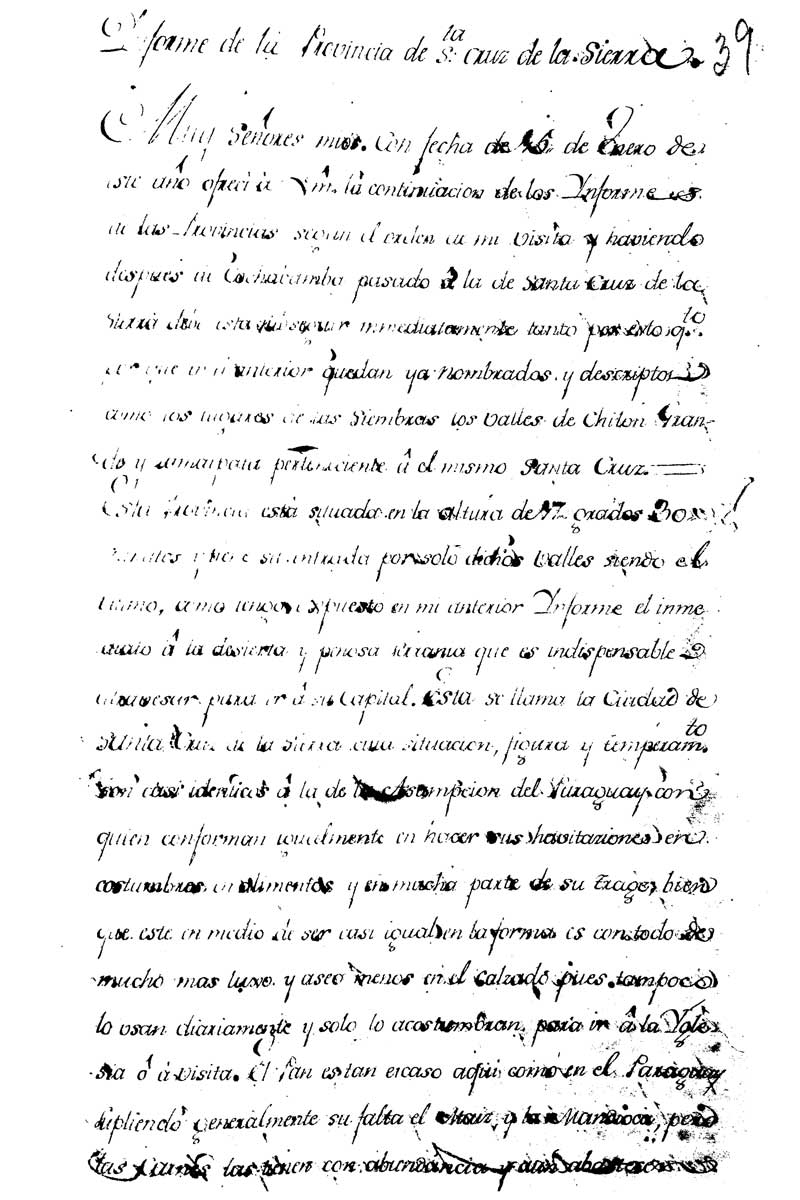 Informe de la Provincia de S.ta Cruz de la Sierra. 39
Muy Señores mios. Con fecha de 15 de Enero de
este año ofreci à Vm. la continuacion de los Informes
de las Provincias segun el orden de mi visita y haviendo
despues de Cochabamba pasado â la de Santa Cruz de la
Sierra debe esta subseguir inmediatamente tanto por esto q.to
por que en el anterior quedan ya nombrados y descriptos
como los lugares de las Siembras los Valles de Chilon Gran
de y Samaipata perteneciente â el mismo Santa Cruz.
Esta Provincia està situada en la altura de 17 grados 30
minutos y tiene su entrada por solo dichos Valles siendo el
ultimo, como tengo expuesto en mi anterior Informe el inme
diato â la desierta y penosa serrania que es indispensable
atravesar para ir â su Capital. Esta se llama la Ciudad de
Santa Cruz de la Sierra cuia situacion, figura y temperam.to
son casi identicas â la de la Asumpcion del Paraguay con
quien conforman igualmente en hacer sus havitaciones en
costumbres en alimentos y en mucha parte de su trage, bien
que este en medio de ser casi igual en la forma es con todo de
mucho mas luxo y aseo menos en el calzado pues tampoco
lo usan diariamente y solo lo acostumbran para ir â la Ygle
sia ô â visita. El Pan es tan escaso aqui como en el Paraguay
supliendo generalmente su falta el Maiz, y la Mandioca, pero
las Carnes las tienen con abundancia y